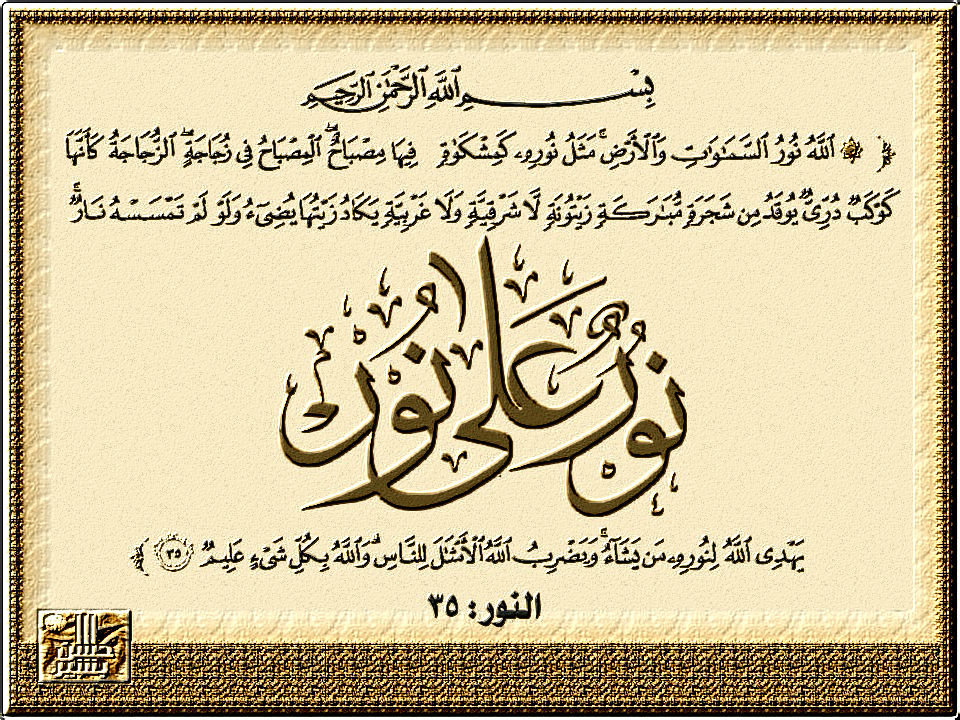 بِسْمِ ٱللَّهِ ٱلرَّحْمَٰنِ ٱلرَّحِيمِ
﴿ ۞ ٱللَّهُ نُورُ ٱلسَّمَٰوَٰتِ وَٱلْأَرْضِ ۚ مَثَلُ نُورِهِۦ كَمِشْكَوٰةٍ فِيهَا مِصْبَاحٌ ۖ ٱلْمِصْبَاحُ فِى زُجَاجَةٍ ۖ ٱلزُّجَاجَةُ كَأَنَّهَا
كَوْكَبٌ دُرِّىٌّ يُوقَدُ مِن شَجَرَةٍ مُّبَٰرَكَةٍ زَيْتُونَةٍ لَّا شَرْقِيَّةٍ وَلَا غَرْبِيَّةٍ يَكَادُ زَيْتُهَا يُضِىٓءُ وَلَوْ لَمْ تَمْسَسْهُ نَارٌ ۚ
نُورٌ عَلَىٰ نُورٍ
يَهْدِى ٱللَّهُ لِنُورِهِۦ مَن يَشَآءُ ۚ وَيَضْرِبُ ٱللَّهُ ٱلْأَمْثَٰلَ لِلنَّاسِ ۗ وَٱللَّهُ بِكُلِّ شَىْءٍ عَلِيمٌ ٣٥ ﴾
النور: ٣٥